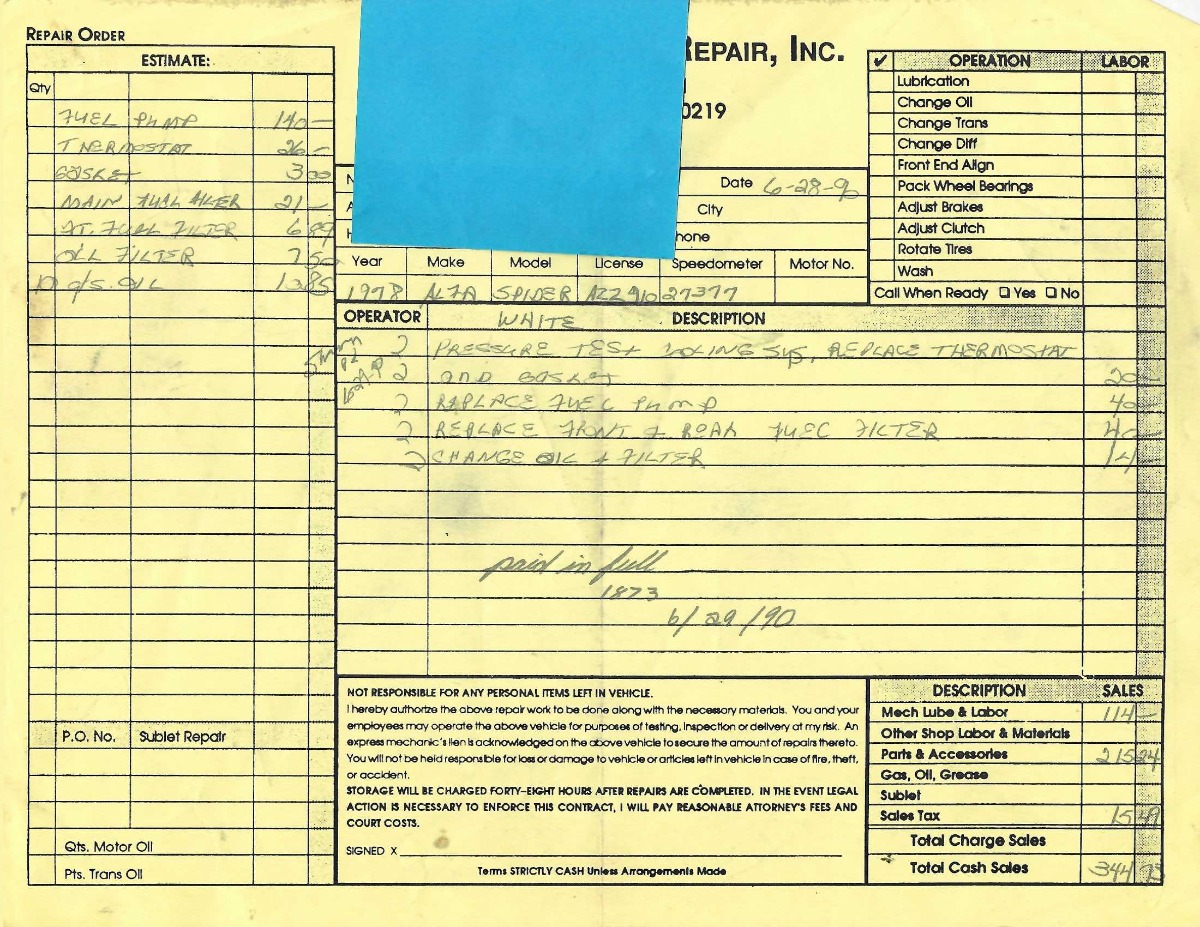 REPAIR ORDER
ESTIMATE:
Qty
FUEL PUMP 140—
THERMOSTAT 26—
GASKET 3 00
MAIN FUAL FILTER 21—
FUAL FILTER 6 89
OIL FILTER 7 50
10 q/s. OIL 10 85
P.O. No. Sublet Repair
Qts. Motor Oil
Pts. Trans Oil
REPAIR, INC.
0219
Date 6-28-90
City
hone
Year Make Model License Speedometer Motor No.
1978 ALFA SPIDER AZZ910 27377
✓ OPERATION LABOR
Lubrication
Change Oil
Change Trans
Change Diff
Front End Align
Pack Wheel Bearings
Adjust Brakes
Adjust Clutch
Rotate Tires
Wash
Call When Ready ☐ Yes ☐ No
OPERATOR WHITE DESCRIPTION
2 PRESSURE TEST COOLING SYS, REPLACE THERMOSTAT
2 AND GASKET 20—
2 REPLACE FUEL PUMP 40—
2 REPLACE FRONT & REAR FUEL FILTER 40—
2 CHANGE OIL + FILTER 14—
paid in full
1873
6/29/90
NOT RESPONSIBLE FOR ANY PERSONAL ITEMS LEFT IN VEHICLE.
I hereby authorize the above repair work to be done along with the necessary materials. You and your
employees may operate the above vehicle for purposes of testing, inspection or delivery at my risk. An
express mechanic's lien is acknowledged on the above vehicle to secure the amount of repairs thereto.
You will not be held responsible for loss or damage to vehicle or articles left in vehicle in case of fire, theft,
or accident.
STORAGE WILL BE CHARGED FORTY-EIGHT HOURS AFTER REPAIRS ARE COMPLETED. IN THE EVENT LEGAL
ACTION IS NECESSARY TO ENFORCE THIS CONTRACT, I WILL PAY REASONABLE ATTORNEY'S FEES AND
COURT COSTS.
SIGNED X
Terms STRICTLY CASH Unless Arrangements Made
DESCRIPTION SALES
Mech Lube & Labor 114—
Other Shop Labor & Materials
Parts & Accessories 215 24
Gas, Oil, Grease
Sublet
Sales Tax 15 49
Total Charge Sales
Total Cash Sales 344 73